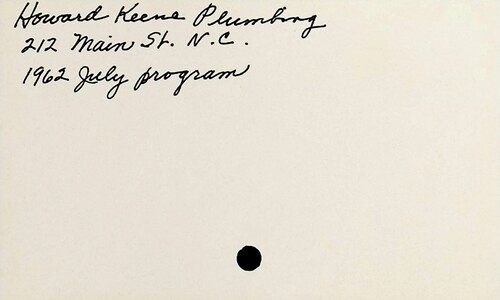 Howard Keene Plumbing
212 Main St. N.C.
1962 July program